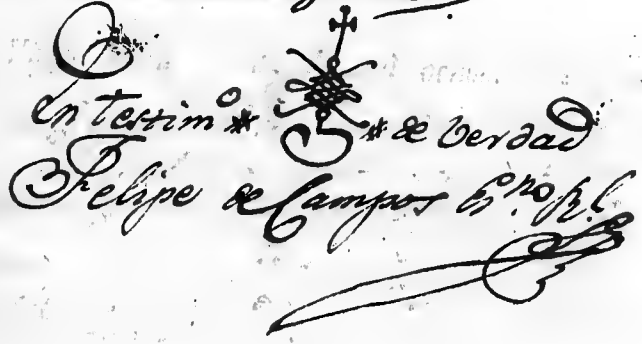 En testim.º de verdad
Felipe de Campos E.no R.l